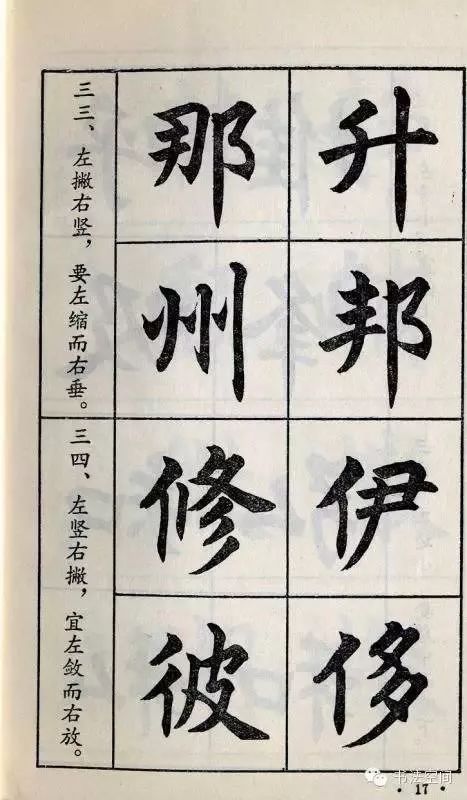 三三、左撇右竖，要左缩而右垂。
升 那
邦 州
三四、左竖右撇，宜左敛而右放。
伊 修
侈 彼
书法空间
·17·